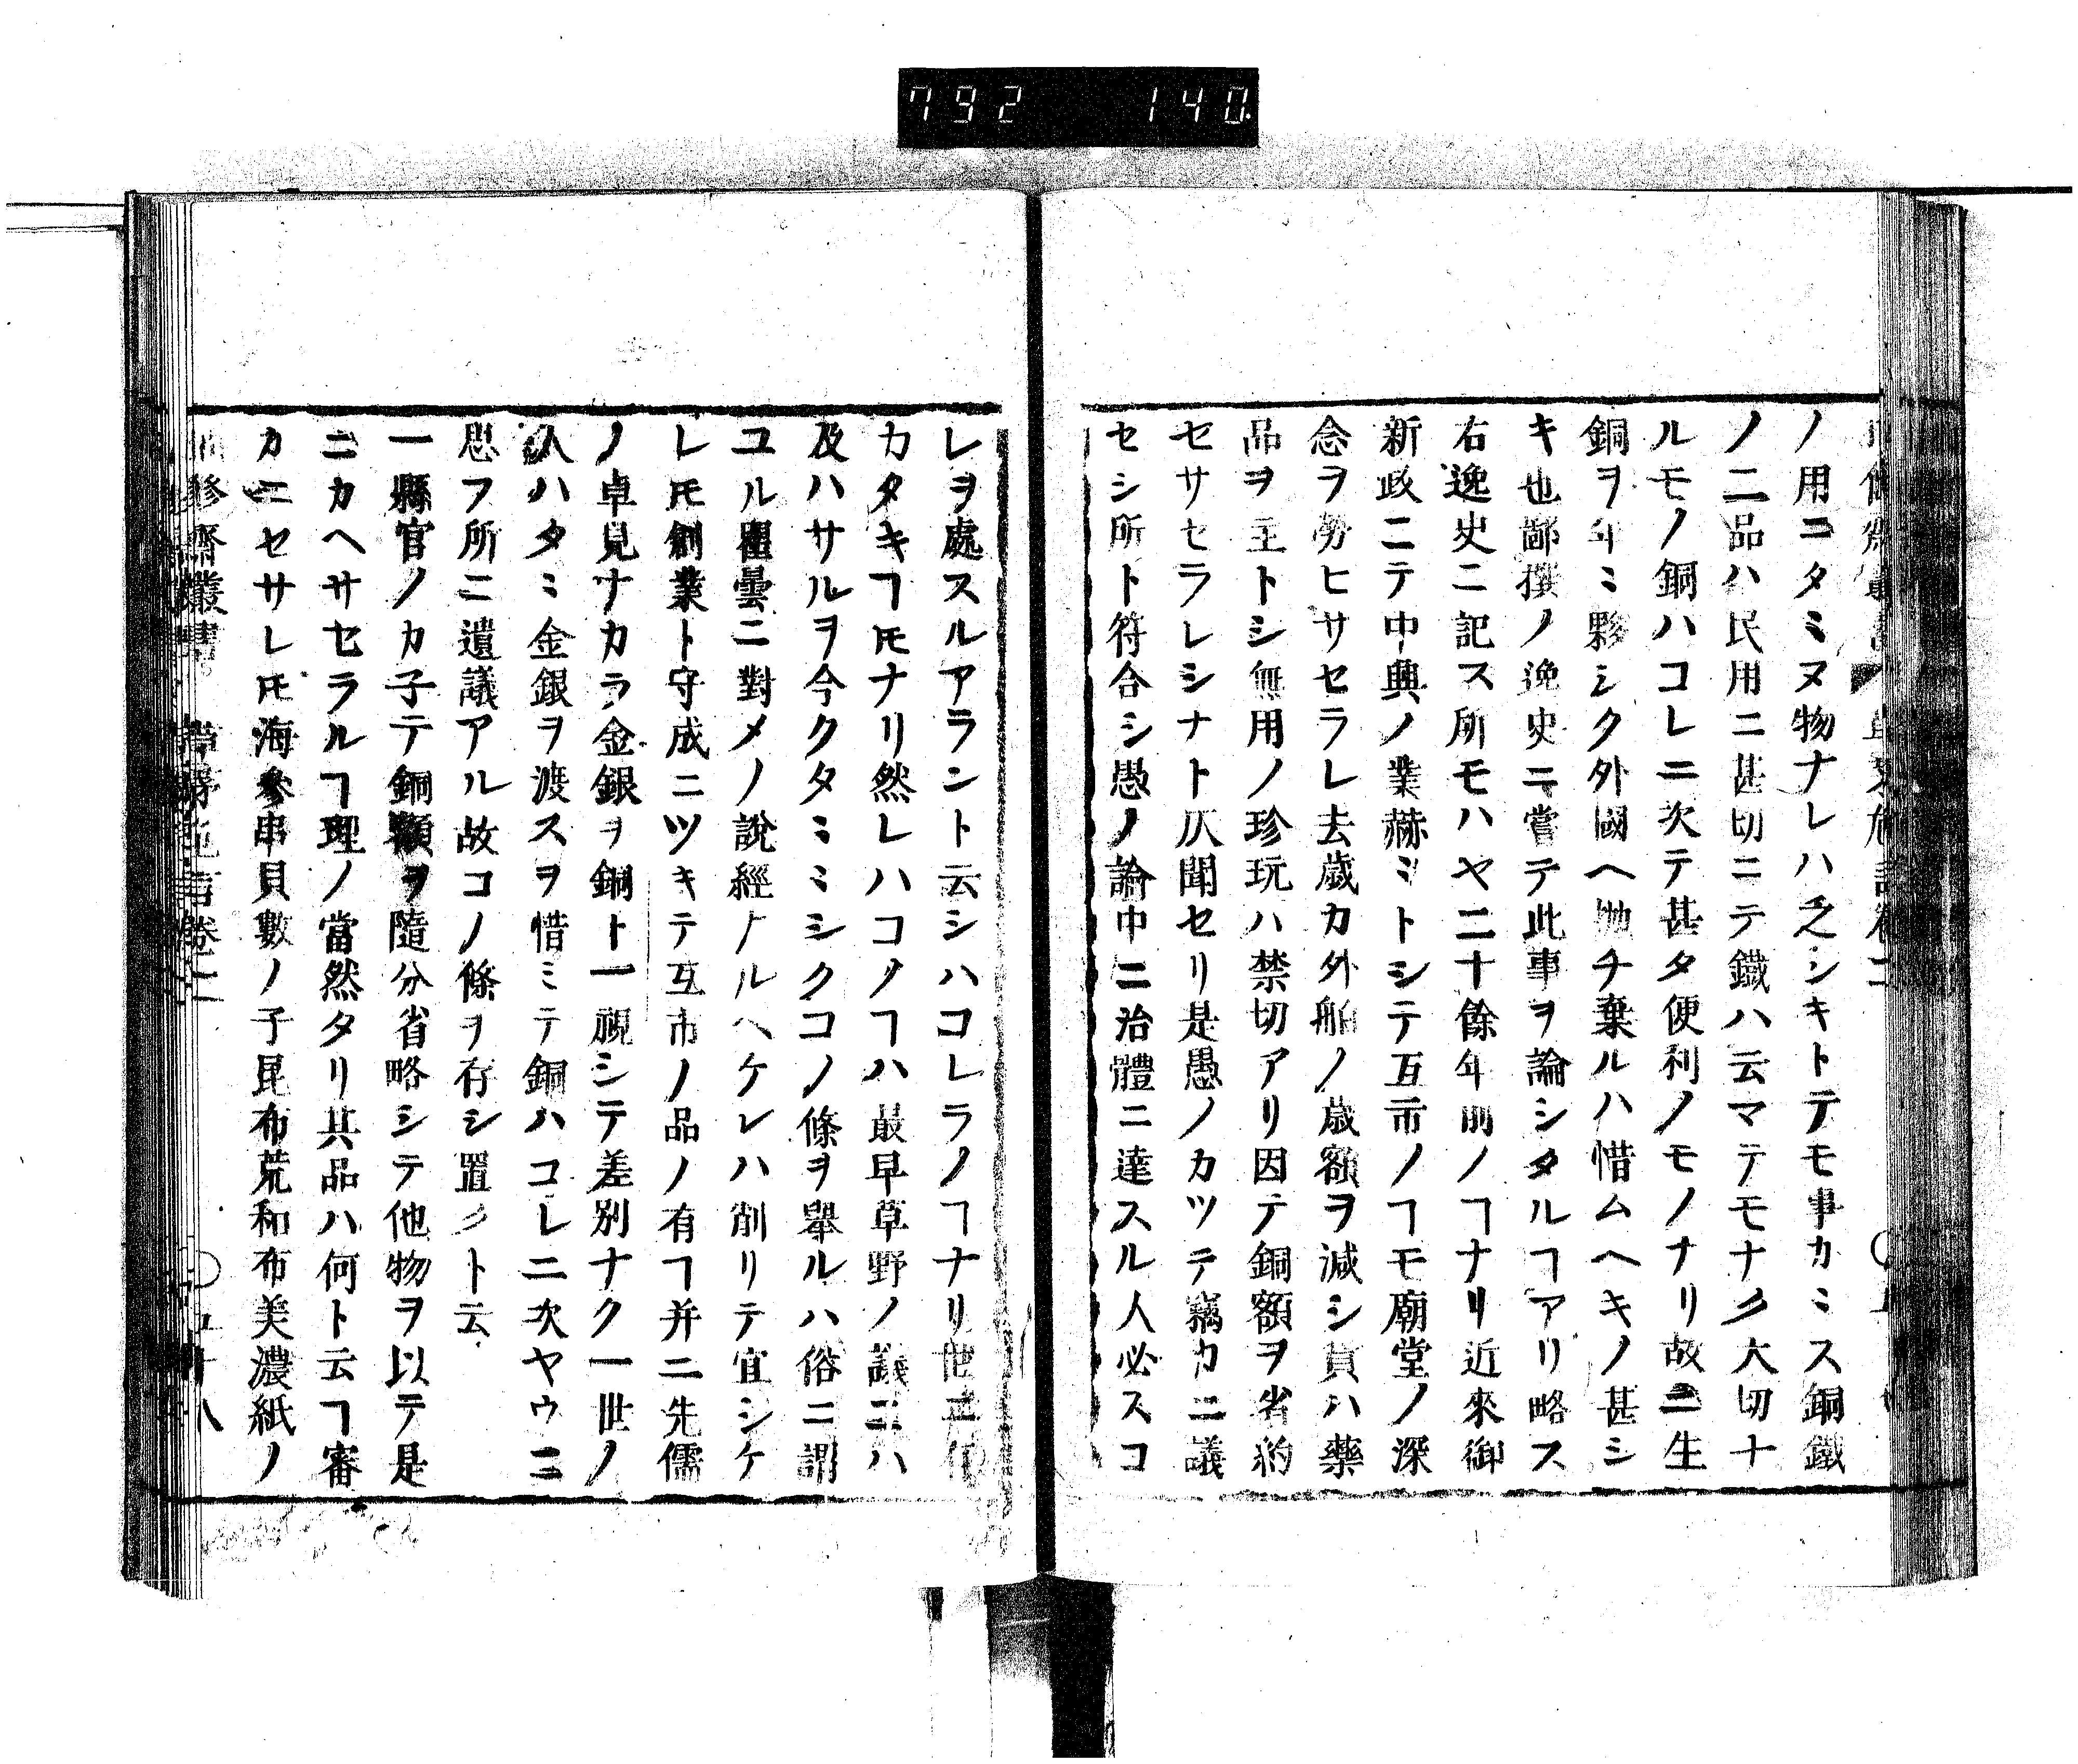 792 140
ノ用ニタミヌ物ナレハ乏シキトテモ事カミス銅鐵
ノ二品ハ民用ニ甚切ニテ鐵ハ云マテモナク大切ナ
ルモノ銅ハコレニ次テ甚タ便利ノモノナリ故ニ生
銅ヲ年ミ夥シク外國ヘ抛チ棄ルハ惜ムヘキノ甚シ
キ也鄙撰ノ逸史ニ嘗テ此事ヲ論シタルヿアリ略ス
右逸史ニ記ス所モハヤ二十餘年前ノヿナリ近來御
新政ニテ中興ノ業赫ミトシテ互市ノヿモ廟堂ノ深
念ヲ勞ヒサセラレ去歲カ外舶ノ歲額ヲ減シ貨ハ藥
品ヲ主トシ無用ノ珍玩ハ禁切アリ因テ銅額ヲ省約
セサセラレシナト仄聞セリ是愚ノカツテ竊カニ議
セシ所ト符合シ愚ノ論中ニ治體ニ達スル人必スコ
レヲ處スルアラント云シハコレラノヿナリ
カタキヿ𪜈ナリ然レハコノヿハ最早草野ノ議ニハ
及ハサルヲ今クタミミシクコノ條ヲ舉ルハ俗ニ謂
ユル瞿曇ニ對メノ說經ナルヘケレハ削リテ宜シケ
レ𪜈創業ト守成ニツキテ互市ノ品ノ有ヿ并ニ先儒
ノ卓見ナカラ金銀ヲ銅ト一視シテ差別ナク一世ノ
人ハタミ金銀ヲ渡スヲ惜ミテ銅ハコレニ次ヤウニ
思フ所ニ遺議アル故コノ條ヲ存シ置クト云
一縣官ノカ子テ銅額ヲ隨分省略シテ他物ヲ以テ是
ニカヘサセラルヿ理ノ當然タリ其品ハ何ト云ヿ審
カニセサレ𪜈海參串貝數ノ子昆布荒和布美濃紙ノ
脩齋叢書 草茅危言卷二 ○五十八